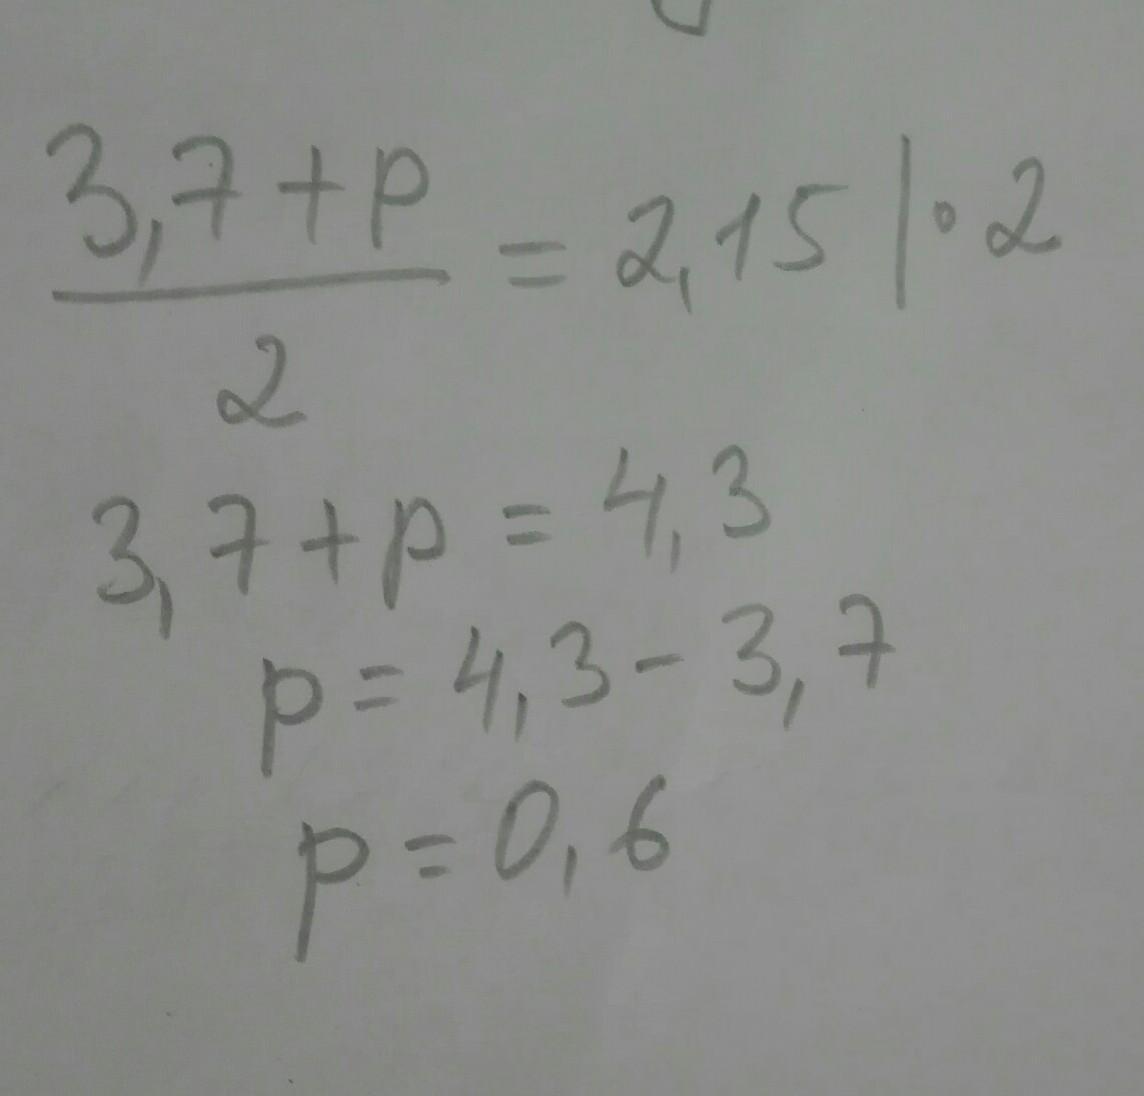 3,7+p
2
= 2,15 |∘ 2
3,7+p = 4,3
p = 4,3 - 3,7
p = 0,6